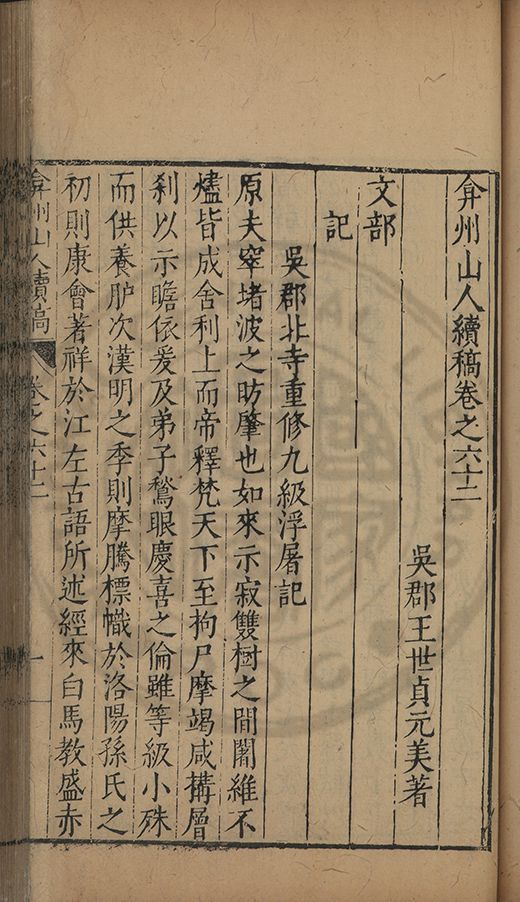 弇州山人續稿卷之六十二
吳郡王世貞元美著
文部
記
吳郡北寺重修九級浮屠記
原夫窣堵波之昉肇也如來示寂雙樹之間闍維不
燼皆成舍利上而帝釋梵天下至拘尸摩竭咸搆層
剎以示瞻依爰及弟子鶖眼慶喜之倫雖等級小殊
而供養胪次漢明之季則摩騰標幟於洛陽孫氏之
初則康會著祥於江左古語所述經來白馬教盛赤
弇州山人續稿
卷之六十二
一